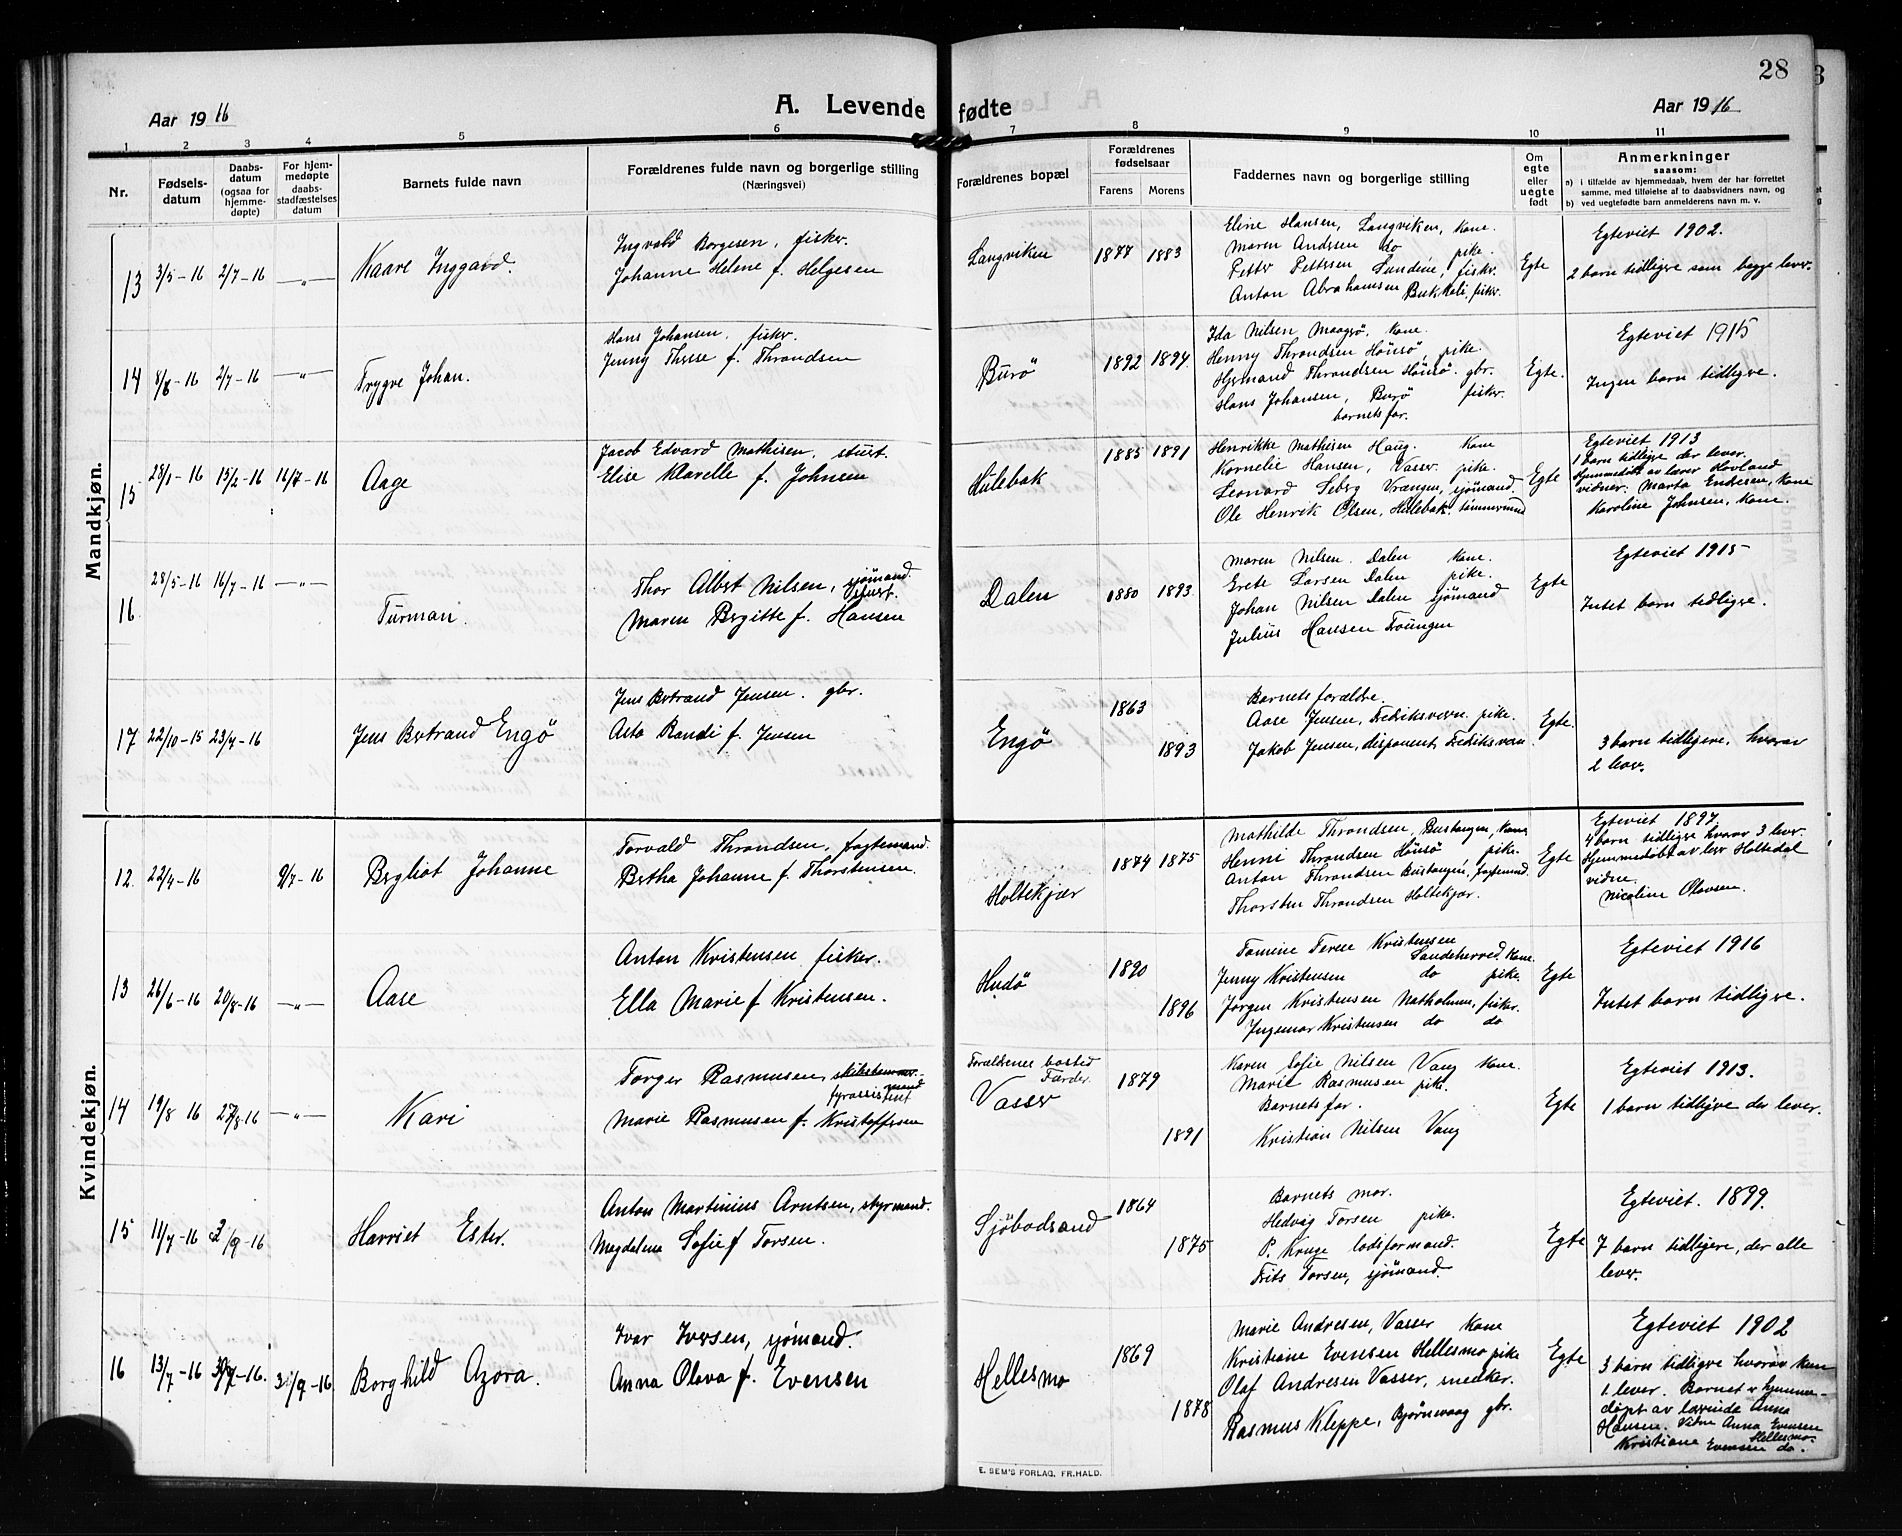 28
Aar 1916
A. Levende fødte
Aar 1916
1 2 3 4 5 6 7 8 9 10 11
Nr.
Fødsels-
datum
Daabs-
datum
(ogsaa for
hjemme-
døpte)
For hjem-
medøpte
daabs-
stadfæstelses
datum
Barnets fulde navn
Forældrenes fulde navn og borgerlige stilling
(Næringsvei)
Forældrenes bopæl
Forældrenes
fødselsaar
Farens Morens
Faddernes navn og borgerlige stilling
Om
egte
eller
uegte
født
Anmerkninger
saasom:
a) i tilfælde av hjemmedaab, hvem der har forrettet
samme, med tilføielse af to daabsvidners navn, og
b) ved uegtefødte barn anmelderens navn m. v.
Mandkjøn.
13 3/5-16 2/7-16 —„—
Kaare Inggard.
Ingvald Borgesen, fisker.
Johanne Helene f. Helgesen
Langviken
1877 1883
Eline Hansen, Langviken, Kone.
Maren Andrsen do pike.
Petter Pettersen Sundene, fisker.
Anton Abrahamsen Bukkeli, fisker.
Egte
Egteviet 1902.
2 barn tidligere som begge lever.
14 8/6-16 2/7-16 —„—
Trygve Johan.
Hans Johansen, fisker.
Jenny Threse f. Throndsen
Burø
1892 1894.
Ida Nilsen Maagerø, Kone.
Henny Throndsen Hønsø, pike.
Hjermand Throndsen Hønsø. gbr.
Hans Johansen, Burø fisker.
barnets far.
Egte.
Egteviet 1915
Ingen barn tidligre.
15 28/1-16 15/2-16 16/7-16
Aage
Jacob Edvard Mathisen, stuert.
Elise Klarelle f. Johnsen
Hulebak
1885 1891
Henrikke Mathisen Haug. Kone
Kornelie Hansen, Vasser. pike.
Leonard Seberg Vrængen, sjømand.
Ole Henrik Olsen, Hulebak. tømmermand
Egte
Egteviet 1913
1 barn tidligre der lever.
Hjemmedøbt av lærer Hovland
vidner: Marta Endresen, Kone
Karoline Johnsen, Kone.
16 28/5-16 16/7-16 —„—
Turman.
Thor Albert Nilsen, sjømand.
stuert.
Maren Birgitte f. Hansen
Dalen
1880 1893.
Maren Nilsen. Dalen Kone.
Grete Larsen Dalen pike.
Johan Nilsen Dalen sjømand
Julius Hansen Foungen
Egte
Egteviet 1915
Intet barn tidligre.
17 22/10-15 23/7-16
Jens Bertrand Engø
Jens Bertrand Jensen. gbr.
Asta Randi f. Jensen
Engø
1863
1893
Barnets forældre.
Aase Jensen, Fredriksvern. pike.
Jakob Jensen, disponent, Fredriksvern
Egte.
3 barn tidligere, hvorav
2 lever.
Kvindekjøn.
12. 22/4-16 9/7-16
Bergliot Johanne
Torvald Throndsen, fogtemand.
Bertha Johanne f. Thorstensen.
Holtekjær
1874 1875
Mathilde Throndsen, Bustangen, Kone
Henni Throndsen Hønsø pike.
Anton Throndsen Bustangen, fogtemand.
Thorsten Throndsen Holtekjær.
Egte
Egteviet 1897
4 barn tidligre hvorav 3 lever.
Hjemmedøbt av lærer Holtedal
vidne.
Nicoline Olavsen.
13 26/6-16 20/8-16 —„—
Aase
Anton Kristensen fisker.
Ella Marie f Kristensen.
Hudø
1890
1896
Tomine Terese Kristensen
Sandeherred, Kone.
Jenny Kristensen do pike.
Jørgen Kristensen Natholmen, fisker.
Ingemar Kristensen do do
Egte
Egteviet 1916
Intet barn tidligre.
14 19/8 16 27/8-16 —„—
Kari
Torger Rasmusen,
fyrassistent
Marie Rasmusen f. Kristoffersen
Forældrenes bosted
Færder.
Vasser
1879
1891
Karen Sofie Nilsen Vaug Kone.
Marie Rasmusen pike.
Barnets far.
Kristian Nilsen Vaug
Egte
Egteviet 1913.
1 barn tidligre der lever.
15 11/7-16 3/9-16
Harriet Ester.
Anton Martinius Arntsen, styrmand.
Magdalena Sofie f Torsen.
Sjøbodsand
1864
1875
Barnets mor.
Hedvig Torsen pike.
P. Kruge lodsformand.
Frits Torsen, sjømand.
Egte
Egteviet. 1899.
7 barn tidligere, der alle
lever.
16 13/7-16 30/7-16. 3/9-16
Borghild Azora.
Ivar Iversen, sjømand.
Anna Olava f. Evensen
Hellesmo
1869
1878
Marie Andresen, Vasser Kone
Kristiane Evensen Hellesmo pike
Olaf Andresen Vasser, snedker.
Rasmus Kleppe, Bjørnevaag gbr.
Egte
Egteviet 1902
3 barn tidligre hvorav kun
1 lever. Barnet er hjemme-
døpt av lærerinde Anna
Hansen. Vidne Anna Evensen
Hellesmo.
Kristiane Evensen do.
E. SEM'S FORLAG, FR.HALD.